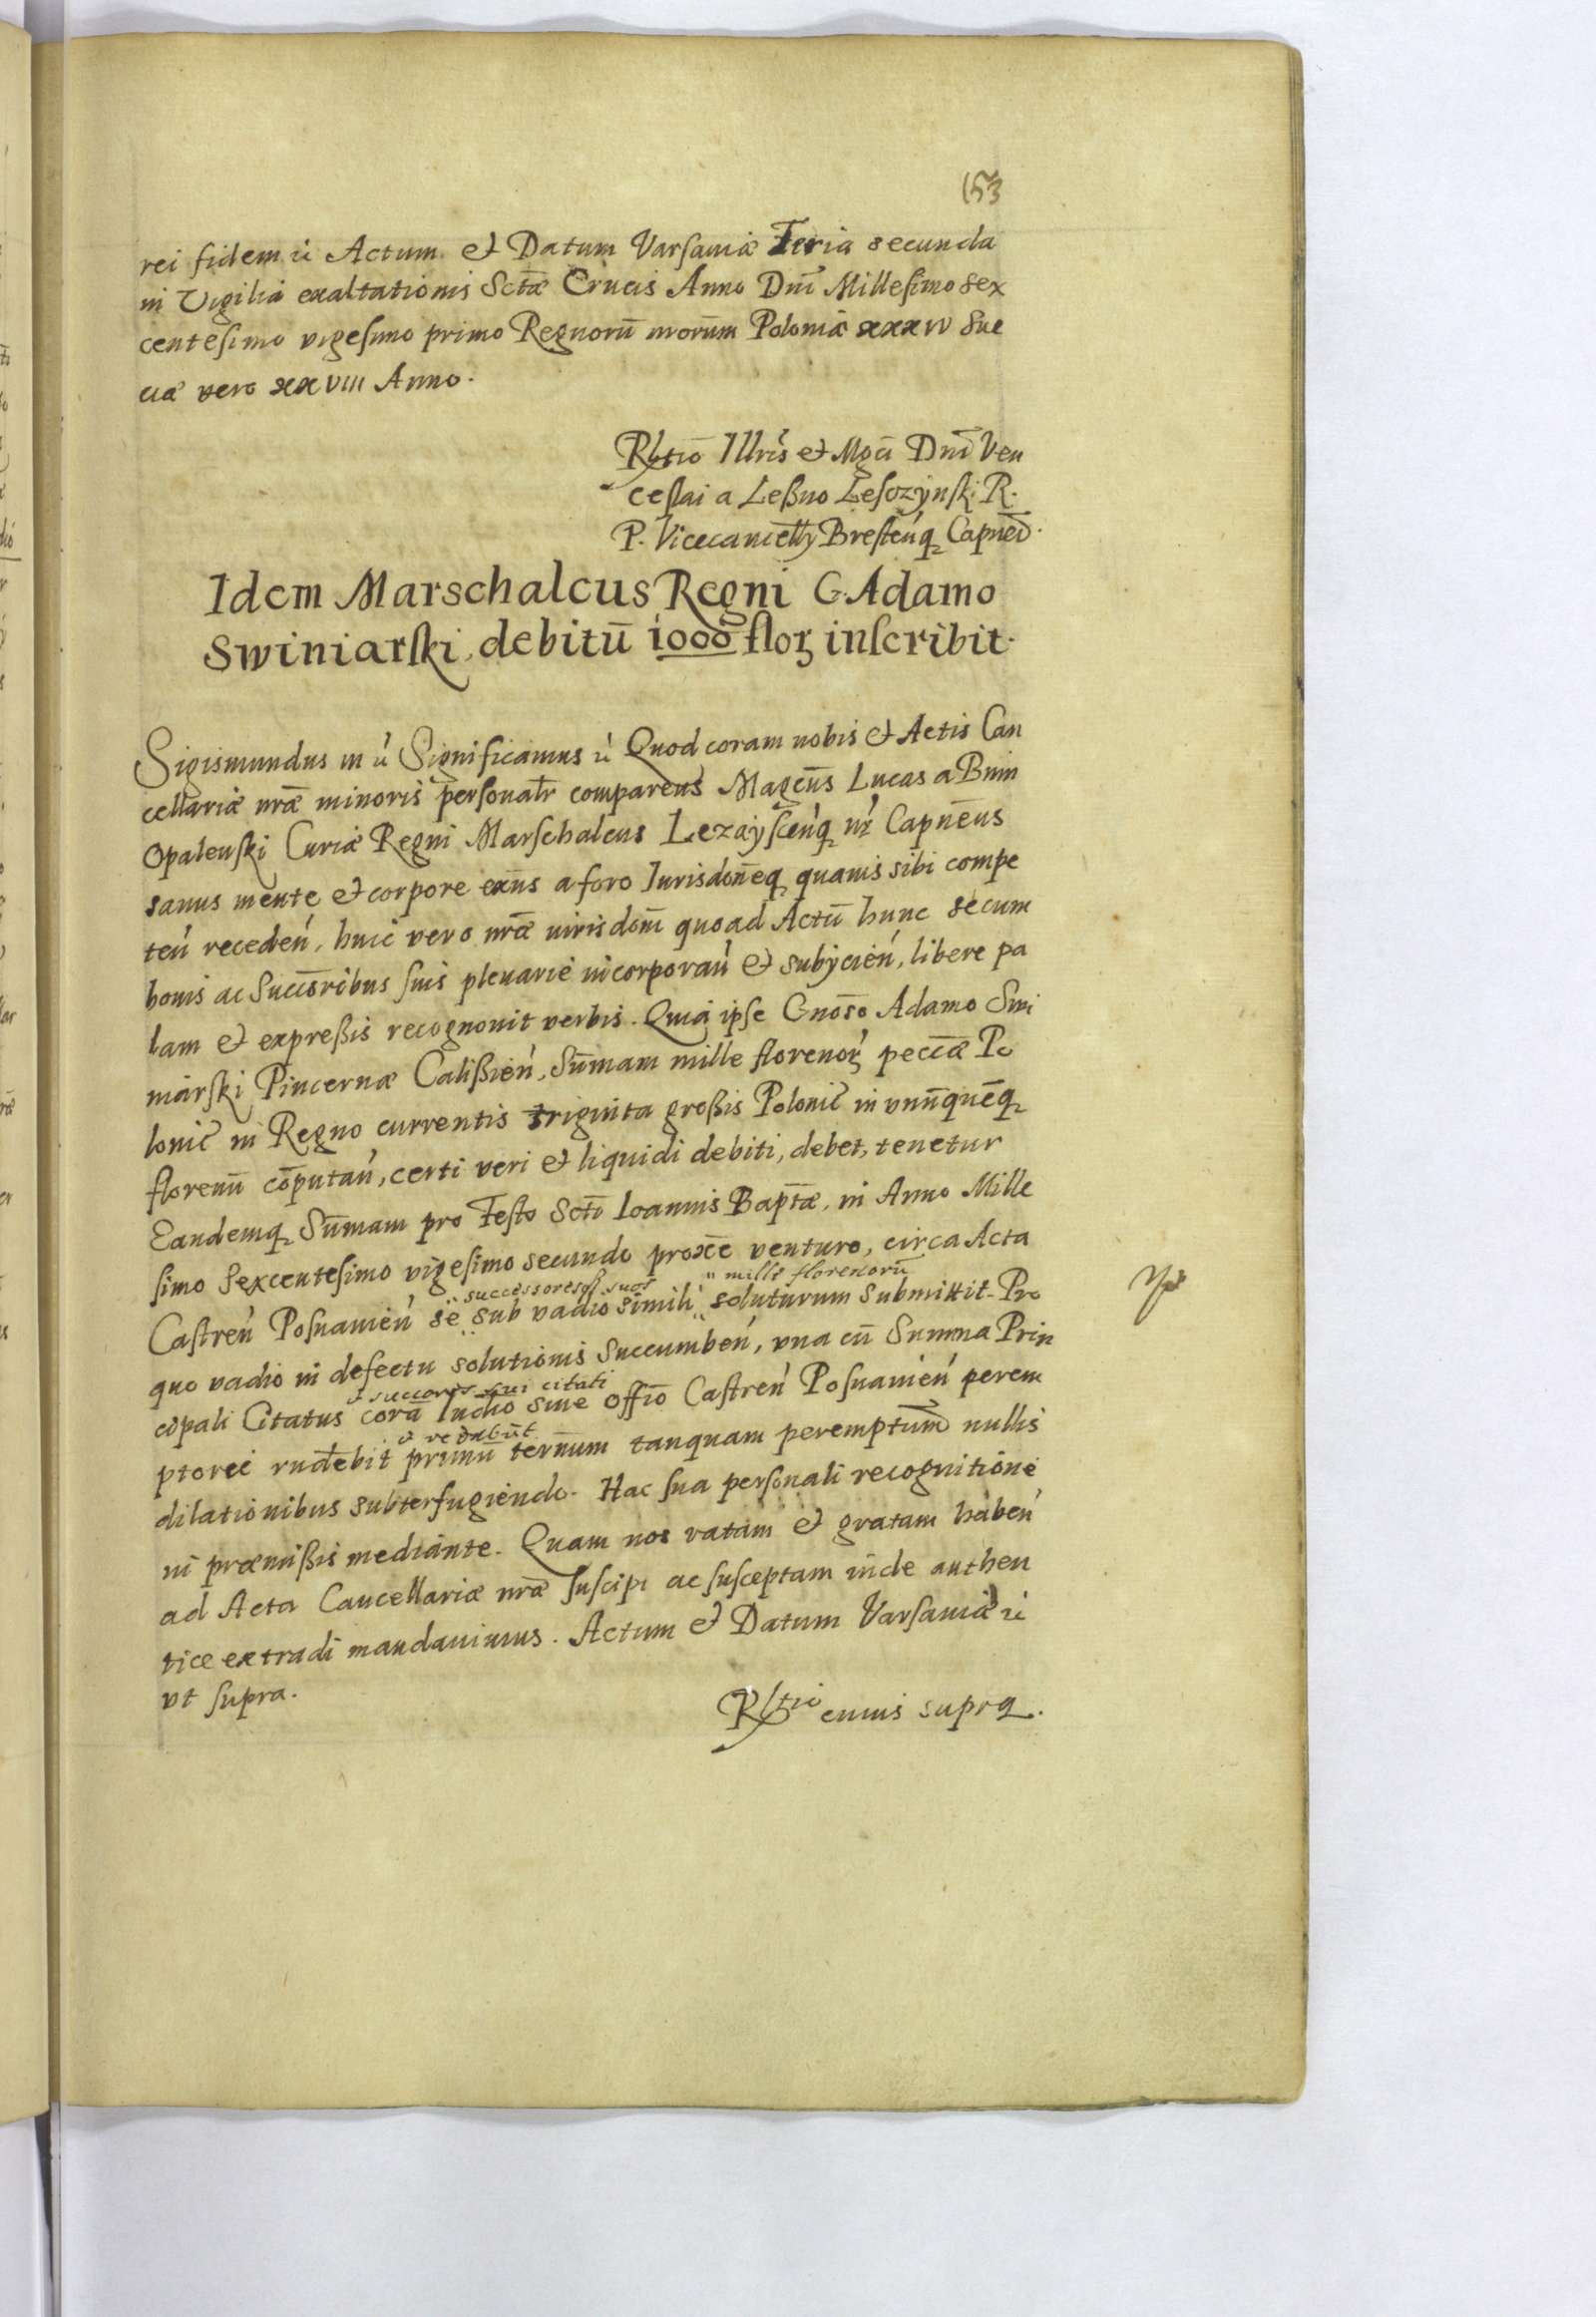 153
rei fidem ù Actum et Datum Varsaviæ Feria secunda
in Vigilia exaltationis Sctæ Crucis Anno Dni Millesimo sex
centesimo vigesimo primo Regnorū nrorum Poloniæ xxxıv Sue
ciæ vero xxvııı Anno.
Rltio Illris et Mgci Dni Ven
ceslai a Leßno Lesczynski R.
P. Vicecancelly Brestenq Capnei.
Idem Marschalcus Regni G. Adamo
Swiniarski, debitū 1000 flor inscribit.
Sigismundus in ù Significamus ù Quod coram nobis et Actis Can
cellariæ nræ minoris personalr comparens Magcus Lucas a Bnin
Opalenski Curiæ Regni Marschalcus Lezayscenq nr Capneus
sanus mente et corpore exns a foro Iurisdoneq quavis sibi compe
ten receden, huic vero nræ iurisdoni quoad Actū hunc secum
bonis ac Succoribus suis plenarie incorporan et subijcien, libere pa
lam et expreßis recognovit verbis. Quia ipse Gnoso Adamo Swi
niarski Pincernæ Calißien, Sūmam mille florenor peccæ Po
lonic in Regno currentis triginta großis Polonic in unūquēq
florenū cōputan, certi veri et liquidi debiti, debet, tenetur
Eandemq Sūmam pro Festo Scti Ioannis Baptæ, in Anno Mille
simo Sexcentesimo vigesimo secundo proxe venturo, circa Acta
successoresq suos mille florenorū
Castren Posnanien se sub vadio simili soluturum submittit. Pro
quo vadio in defectu solutionis succumben, una cū Summa Prin
et succores sui citati
cipali Citatus corā Iudio sive offio Castren Posnanien perem
et rndebūt
ptorie rndebit primū ternum tanquam peremptum nullis
dilationibus subterfugiendo. Hac sua personali recognitione
in præmißis mediante. Quam nos ratam et gratam haben
ad Acta Cancellariæ nræ suscipi ac susceptam inde authen
tice extradi mandavimus. Actum et Datum Varsaviæ ù
ut supra.
Rltio cuius supra.